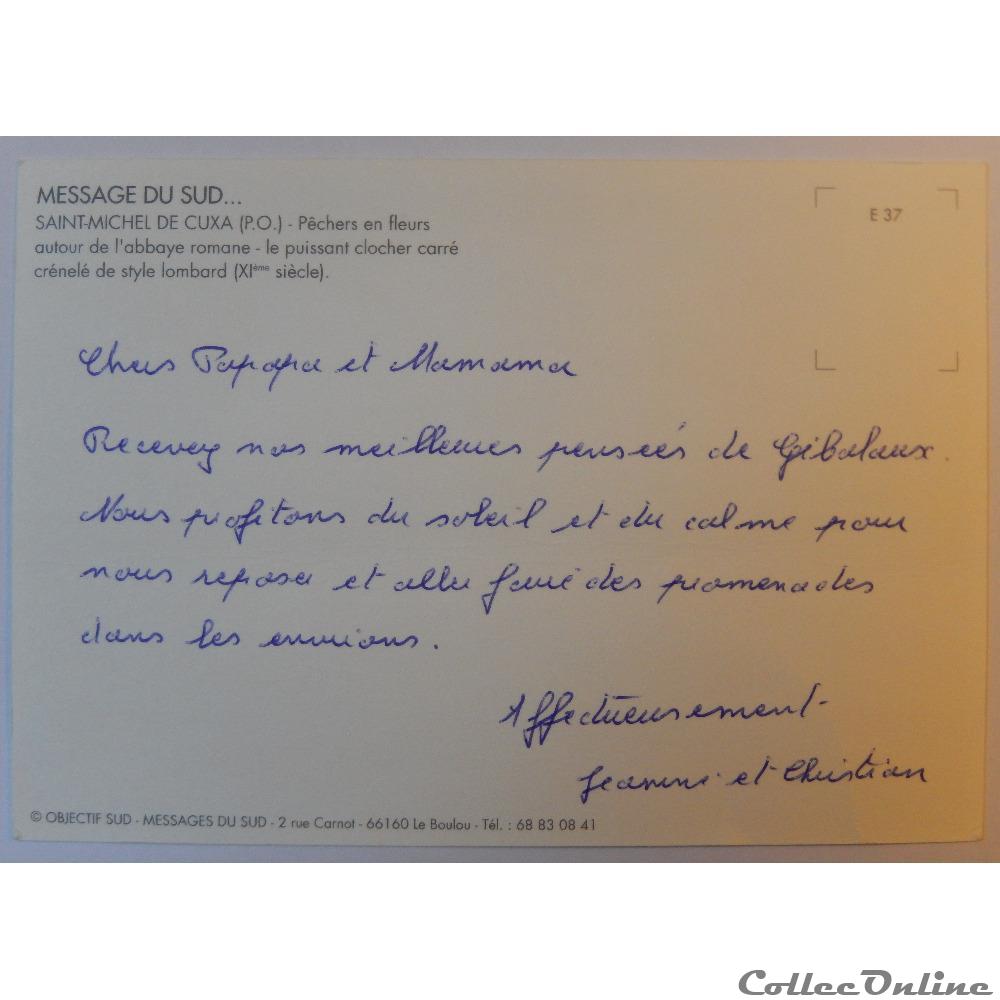 MESSAGE DU SUD...
E 37
SAINT-MICHEL DE CUXA (P.O.) - Pêchers en fleurs
autour de l'abbaye romane - le puissant clocher carré
crénelé de style lombard (XIème siècle).
Chers Papapa et Mamama
Recevez nos meilleures pensées de Gibalaux.
Nous profitons du soleil et du calme pour
nous reposer et aller faire des promenades
dans les environs.
Affectueusement
Jeanine et Christian
© OBJECTIF SUD - MESSAGES DU SUD - 2 rue Carnot - 66160 Le Boulou - Tél. : 68 83 08 41
CollecOnline